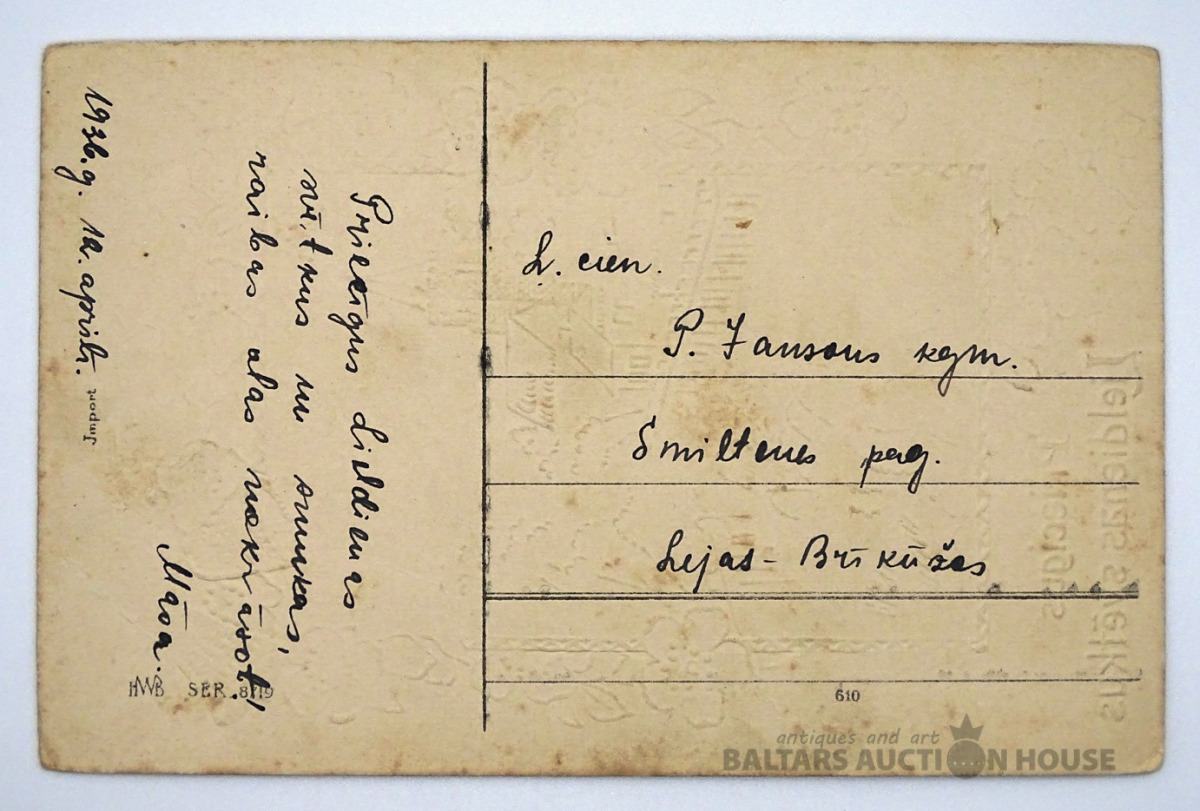 Priecīgus Lieldienas
svētkus un smukas,
raibas olas nokrāsot!
Māsa.
1936.g. 12. aprīlī.
Import
HWB SER. 8119
Ļ. cien.
P. Jansons kgm.
Smiltenes pag.
Lejas - Brīkūžas
610
Lieldienas svētkus
Priecīgus
antiques and art
BALTARS AUCTION HOUSE